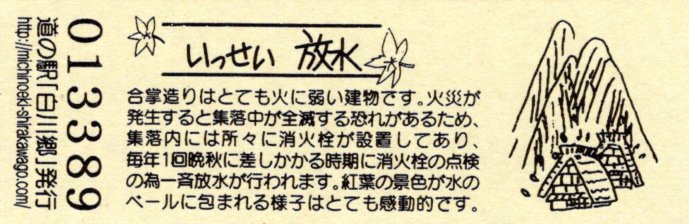 013389
道の駅「白川郷」発行
http://michinoeki-shirakawago.com/
いっせい 放水
合掌造りはとても火に弱い建物です。火災が
発生すると集落中が全滅する恐れがあるため、
集落内には所々に消火栓が設置してあり、
毎年1回晩秋に差しかかる時期に消火栓の点検
の為一斉放水が行われます。紅葉の景色が水の
ベールに包まれる様子はとても感動的です。